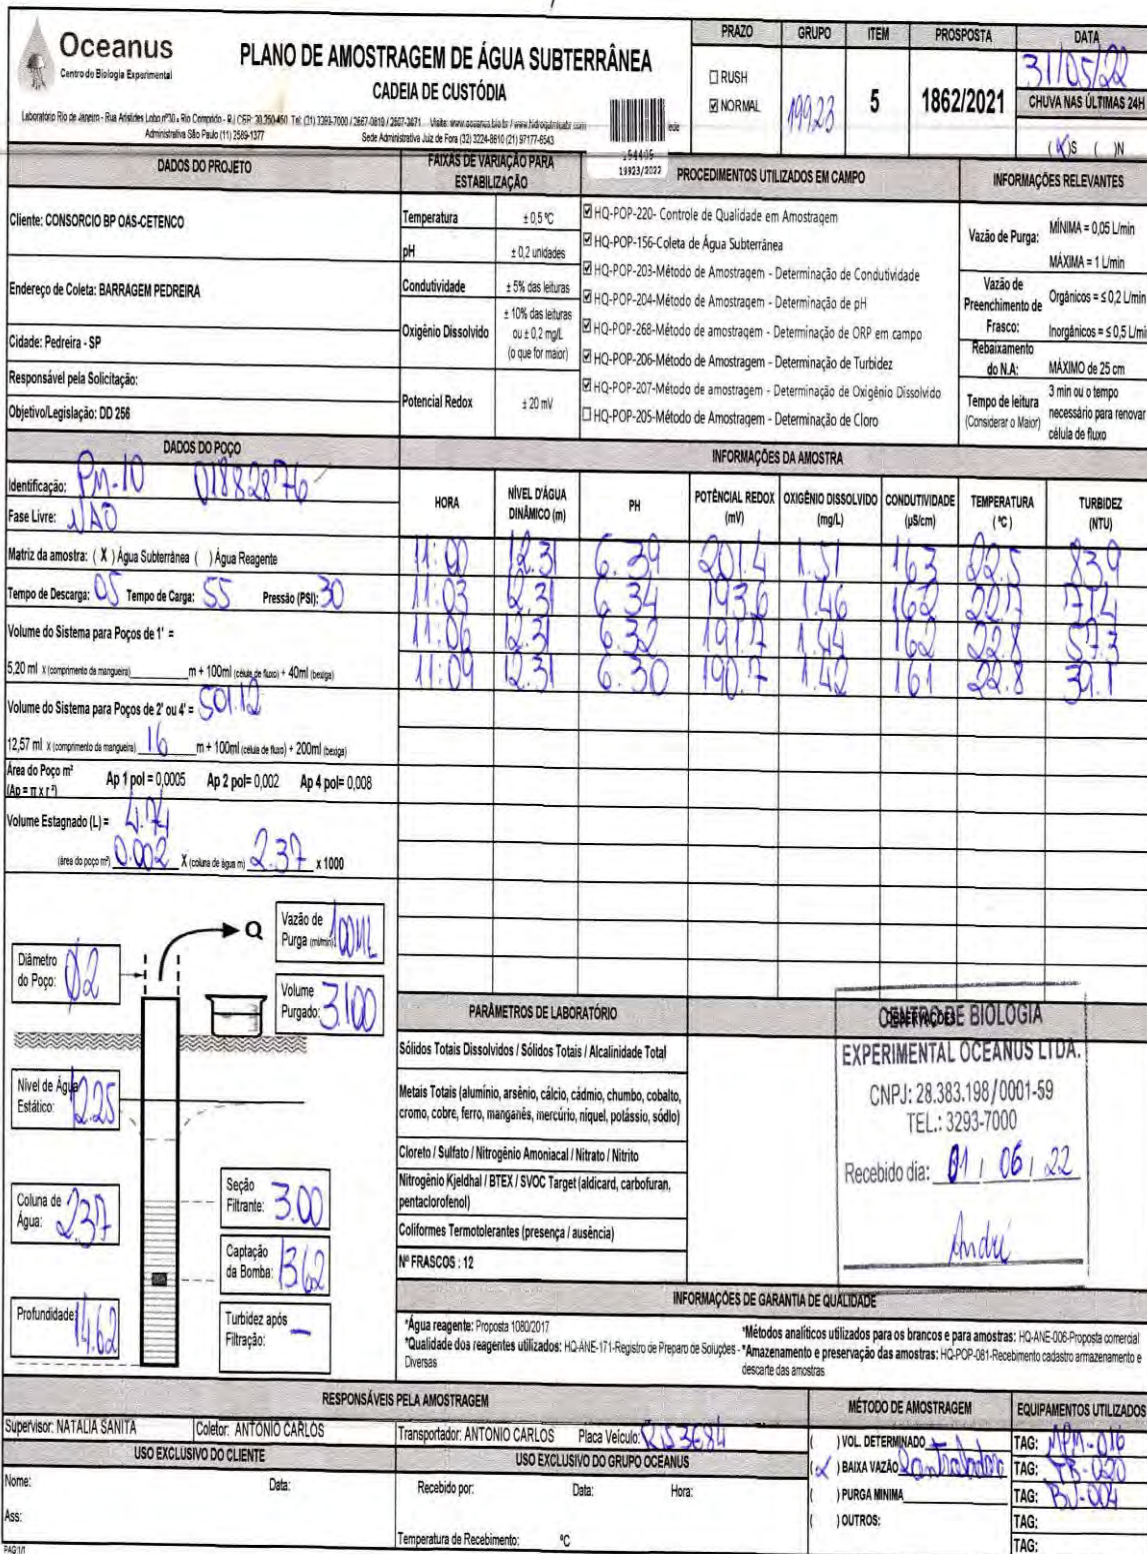 Oceanus
Centro de Biologia Experimental
PLANO DE AMOSTRAGEM DE ÁGUA SUBTERRÂNEA
CADEIA DE CUSTÓDIA
Laboratório Rio de Janeiro - Rua Aristides Lobo nº30 - Rio Comprido - RJ CEP: 20.250-450 Tel: (21) 3293-7000 / 2667-0819 / 2607-3671 Visite: www.oceanus.bio.br / www.hidroquimicabr.com
Administrativa São Paulo (11) 2589-1377 Sede Administrativa Juiz de Fora (32) 3224-8610 (21) 97177-6543
19923/2022
PRAZO GRUPO ITEM PROSPOSTA DATA
☐ RUSH
☑ NORMAL
19923 5 1862/2021 31/05/22
CHUVA NAS ÚLTIMAS 24H
(X)S ( )N
DADOS DO PROJETO
Cliente: CONSORCIO BP OAS-CETENCO
Endereço de Coleta: BARRAGEM PEDREIRA
Cidade: Pedreira - SP
Responsável pela Solicitação:
Objetivo/Legislação: DD 256
FAIXAS DE VARIAÇÃO PARA ESTABILIZAÇÃO
Temperatura ± 0,5 ºC
pH ± 0,2 unidades
Condutividade ± 5% das leituras
Oxigênio Dissolvido ± 10% das leituras ou ± 0,2 mg/L (o que for maior)
Potencial Redox ± 20 mV
PROCEDIMENTOS UTILIZADOS EM CAMPO
☑ HQ-POP-220- Controle de Qualidade em Amostragem
☑ HQ-POP-156-Coleta de Água Subterrânea
☑ HQ-POP-203-Método de Amostragem - Determinação de Condutividade
☑ HQ-POP-204-Método de Amostragem - Determinação de pH
☑ HQ-POP-268-Método de amostragem - Determinação de ORP em campo
☑ HQ-POP-206-Método de Amostragem - Determinação de Turbidez
☑ HQ-POP-207-Método de amostragem - Determinação de Oxigênio Dissolvido
☐ HQ-POP-205-Método de Amostragem - Determinação de Cloro
INFORMAÇÕES RELEVANTES
Vazão de Purga: MÍNIMA = 0,05 L/min
MÁXIMA = 1 L/min
Vazão de Preenchimento de Frasco: Orgânicos = ≤ 0,2 L/min
Inorgânicos = ≤ 0,5 L/min
Rebaixamento do N.A: MÁXIMO de 25 cm
Tempo de leitura (Considerar o Maior) 3 min ou o tempo necessário para renovar célula de fluxo
DADOS DO POÇO
Identificação: PM-10 01882876
Fase Livre: NAO
Matriz da amostra: ( X ) Água Subterrânea ( ) Água Reagente
Tempo de Descarga: 05 Tempo de Carga: 55 Pressão (PSI): 30
Volume do Sistema para Poços de 1' =
5,20 ml x (comprimento da mangueira) m + 100ml (célula de fluxo) + 40ml (bexiga)
Volume do Sistema para Poços de 2' ou 4' = 501.12
12,57 ml X (comprimento da mangueira) 16 m + 100ml (célula de fluxo) + 200ml (bexiga)
Área do Poço m² (Ap = π x r²) Ap 1 pol = 0,0005 Ap 2 pol= 0,002 Ap 4 pol= 0,008
Volume Estagnado (L) = 4.74
(área do poço m²) 0.002 X (coluna de água m) 2.37 x 1000
INFORMAÇÕES DA AMOSTRA
HORA NÍVEL D'ÁGUA DINÂMICO (m) PH POTÊNCIAL REDOX (mV) OXIGÊNIO DISSOLVIDO (mg/L) CONDUTIVIDADE (µS/cm) TEMPERATURA (ºC) TURBIDEZ (NTU)
11:00 12.31 6.39 201.4 1.51 163 22.5 83.9
11:03 12.31 6.34 193.6 1.46 162 22.7 71.4
11:06 12.31 6.32 191.7 1.44 162 22.8 57.3
11:09 12.31 6.30 190.7 1.42 161 22.8 39.1
Q
Diâmetro do Poço: 02
Vazão de Purga (ml/min) 100ML
Volume Purgado: 3.100
Nível de Água Estático: 12.25
Coluna de Água: 2.37
Seção Filtrante: 3.00
Captação da Bomba: 13.62
Profundidade: 14.62
Turbidez após Filtração: —
PARÂMETROS DE LABORATÓRIO
Sólidos Totais Dissolvidos / Sólidos Totais / Alcalinidade Total
Metais Totais (alumínio, arsênio, cálcio, cádmio, chumbo, cobalto, cromo, cobre, ferro, manganês, mercúrio, níquel, potássio, sódio)
Cloreto / Sulfato / Nitrogênio Amoniacal / Nitrato / Nitrito
Nitrogênio Kjeldhal / BTEX / SVOC Target (aldicard, carbofuran, pentaclorofenol)
Coliformes Termotolerantes (presença / ausência)
Nº FRASCOS : 12
CENTRO DE BIOLOGIA
EXPERIMENTAL OCEANUS LTDA.
CNPJ: 28.383.198/0001-59
TEL.: 3293-7000
Recebido dia: 01 / 06 / 22
André
INFORMAÇÕES DE GARANTIA DE QUALIDADE
*Água reagente: Proposta 1080/2017
*Qualidade dos reagentes utilizados: HQ-ANE-171-Registro de Preparo de Soluções - Diversas
*Métodos analíticos utilizados para os brancos e para amostras: HQ-ANE-006-Proposta comercial
*Amazenamento e preservação das amostras: HQ-POP-081-Recebimento cadastro armazenamento e descarte das amostras
RESPONSÁVEIS PELA AMOSTRAGEM
Supervisor: NATALIA SANITA Coletor: ANTONIO CARLOS Transportador: ANTONIO CARLOS Placa Veículo:
USO EXCLUSIVO DO CLIENTE
Nome: Data:
Ass:
USO EXCLUSIVO DO GRUPO OCEANUS
Recebido por: Data: Hora:
Temperatura de Recebimento: ºC
MÉTODO DE AMOSTRAGEM
( ) VOL. DETERMINADO
(X) BAIXA VAZÃO
( ) PURGA MINIMA
( ) OUTROS:
EQUIPAMENTOS UTILIZADOS
TAG: MPM-016
TAG: TB-020
TAG: BJ-004
TAG:
TAG:
PAG1/1